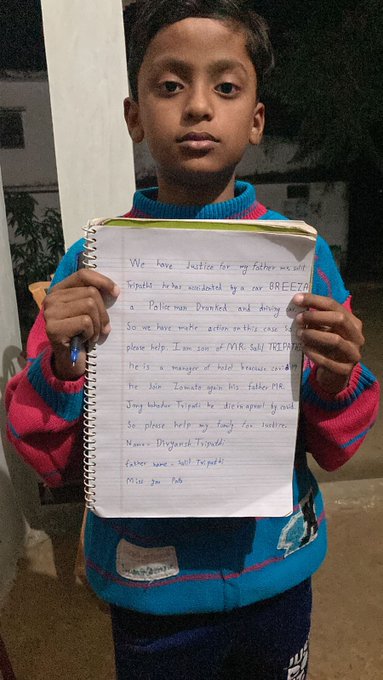 We have Justice for my father mr. salil
Tripathi he has accidented by a car BREEZA
a Police man Dranked and driving car
So we have matke action on this case So
please help. I am son of MR. Salil TRIPATHI
He is a manager of hotel because covid
He Join Zomato again his father MR.
Jang bahadur Tripati he die in apnail by covid.
So please help my family for Justice.
Name - Divyansh Tripathi
father name - Salil Tripathi
Miss you Papa